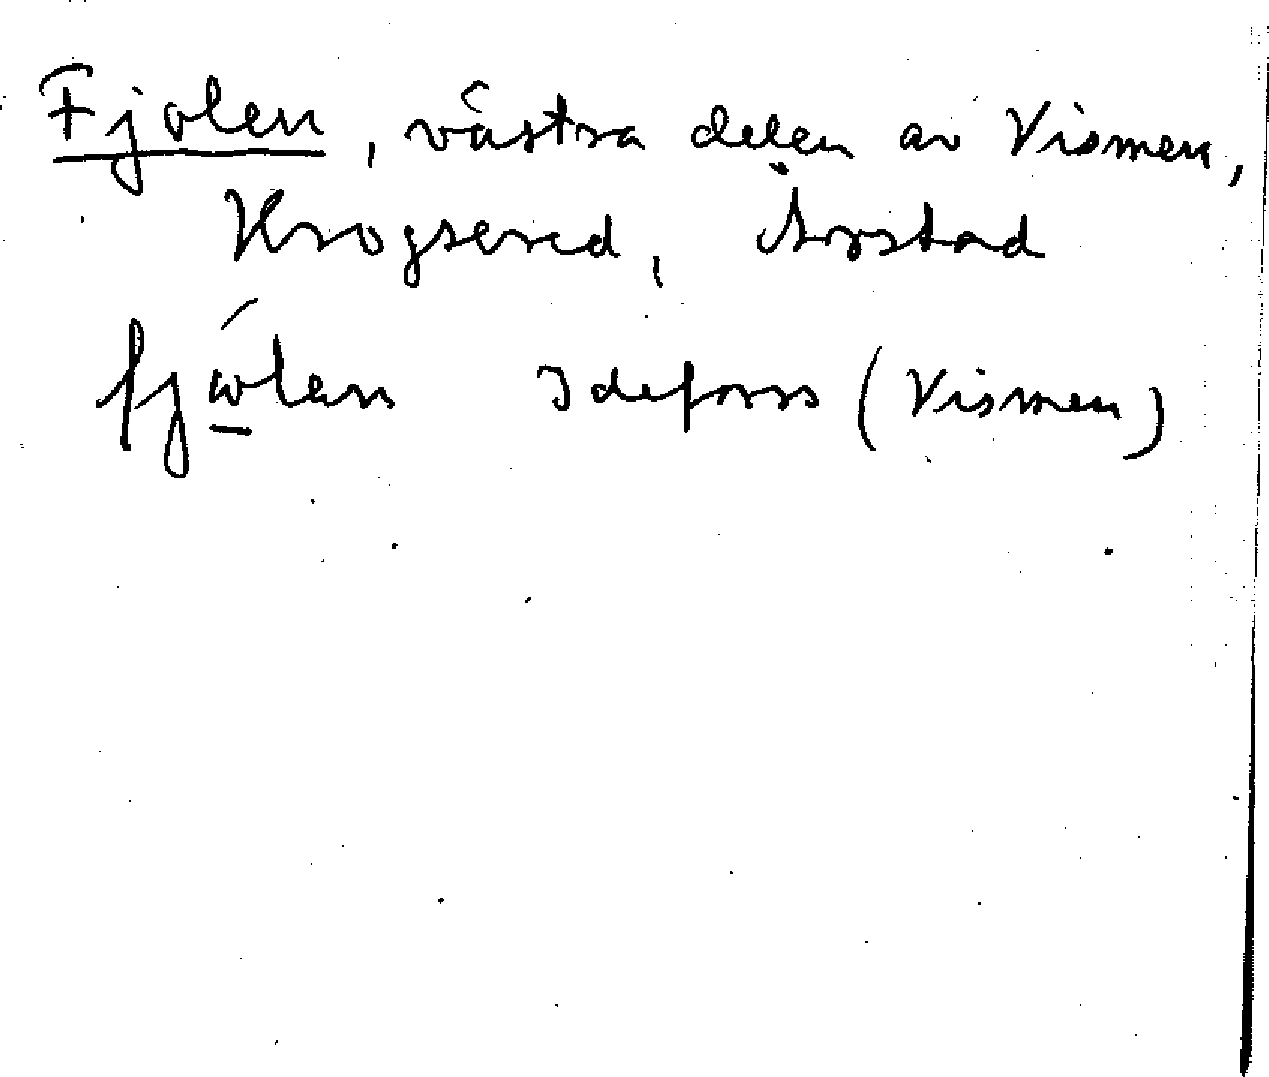 Fjolen, västra delen av Vismen,
Krogsered, Årstad
fjólen Idefors (Vismen)